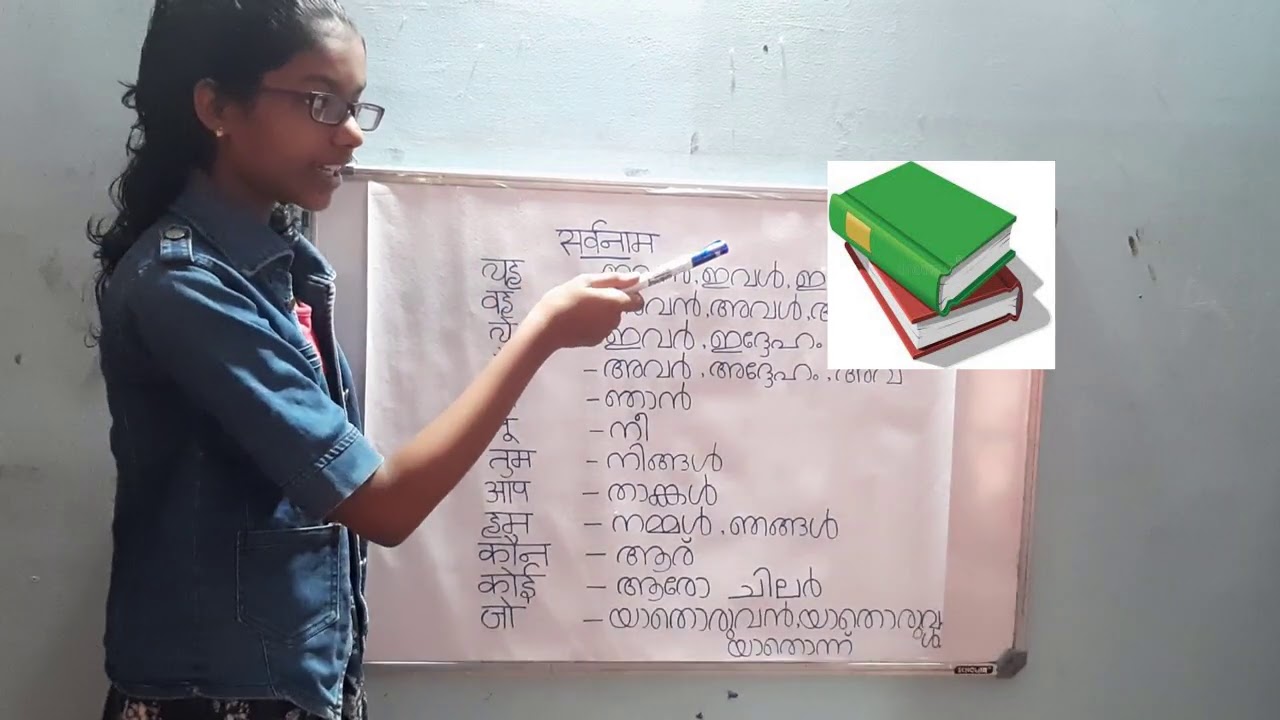 सर्वनाम
यह ഇവൾ.
वह അവൾ.
ये ഇവർ.ഇദ്ദേഹം
- അവർ.അദ്ദേഹം.അവ
- ഞാൻ
- നീ
तुम - നിങ്ങൾ
आप - താങ്കൾ
हम - നമ്മൾ.ഞങ്ങൾ
कौन - ആര്
कोई - ആരോ ചിലർ
जो - യാതൊരുവൻ.യാതൊരുവൾ
യാതൊന്ന്